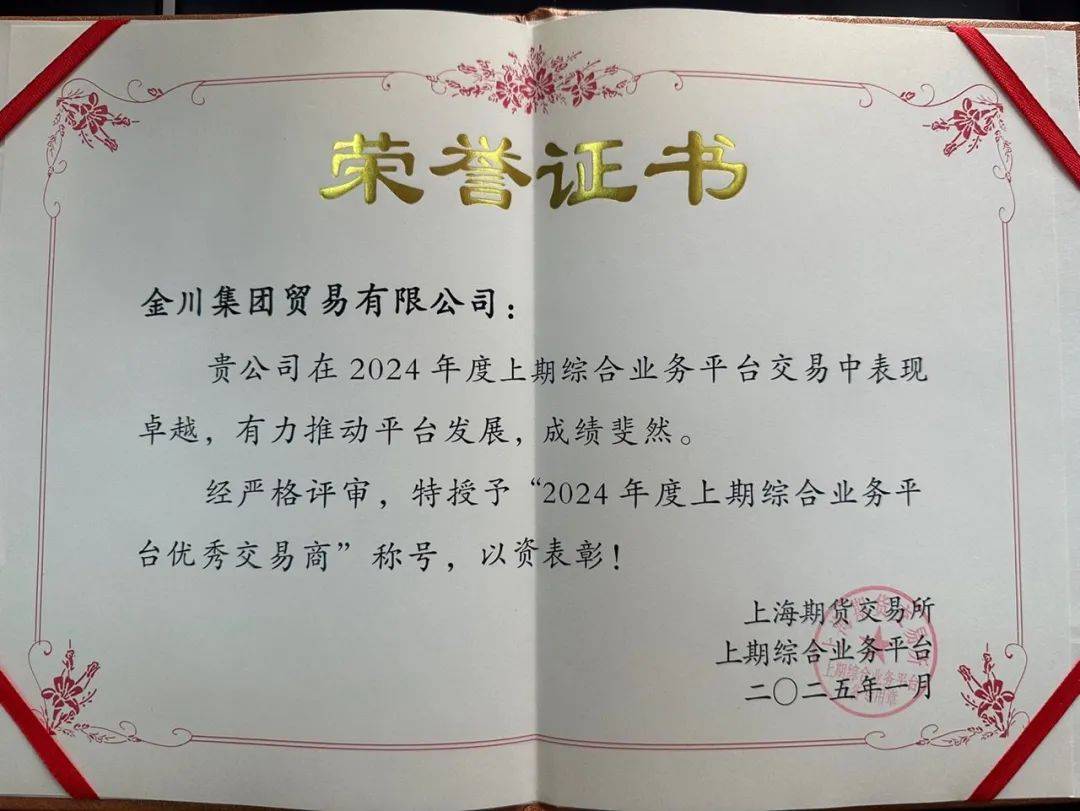 荣誉证书
金川集团贸易有限公司：
贵公司在2024年度上期综合业务平台交易中表现
卓越，有力推动平台发展，成绩斐然。
经严格评审，特授予“2024年度上期综合业务平
台优秀交易商”称号，以资表彰！
上海期货交易所
上期综合业务平台
二〇二五年一月
上期综合业务平台